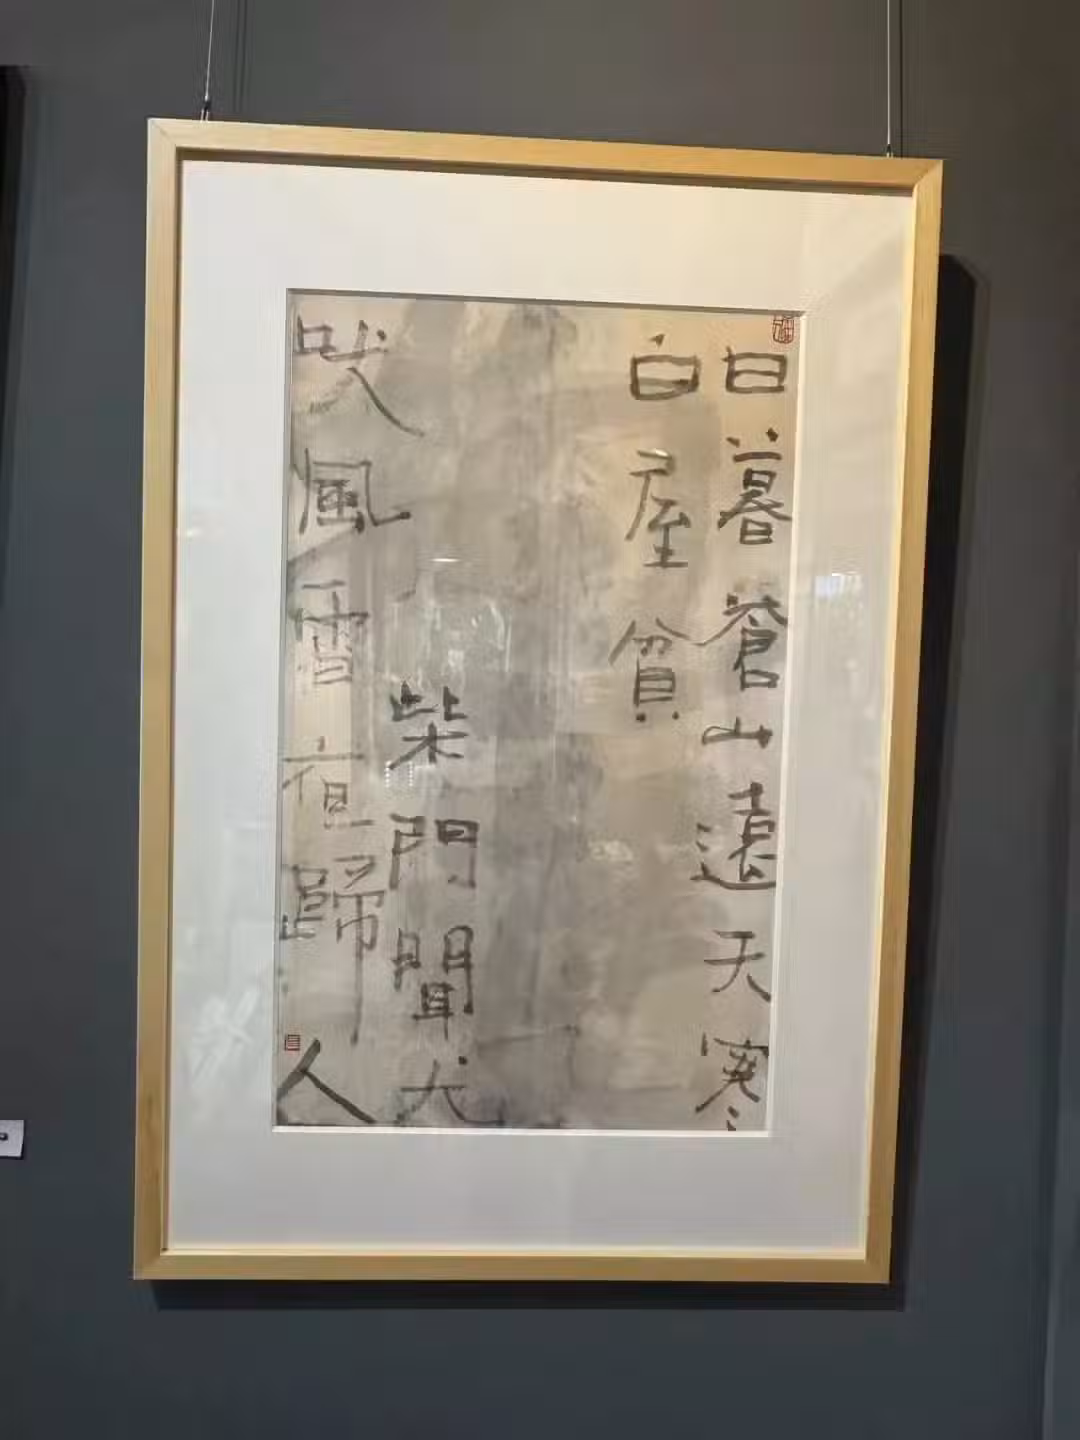 日暮蒼山遠天寒
白屋貧
柴門聞犬
吠風雪夜歸
人